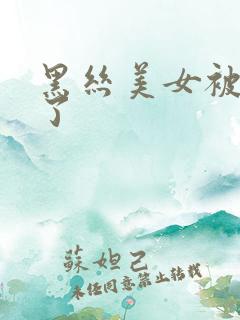 黑丝美女被
了
蘇妲己
未经同意禁止转载